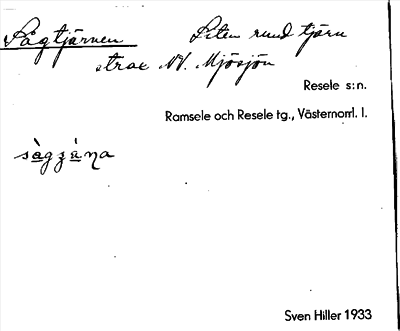 Sågtjärnen Liten rund tjärn
strax NV. Mjösjön
Resele s:n.
Ramsele och Resele tg., Västernorrl. l.
sàgzä̀ṇa
Sven Hiller 1933